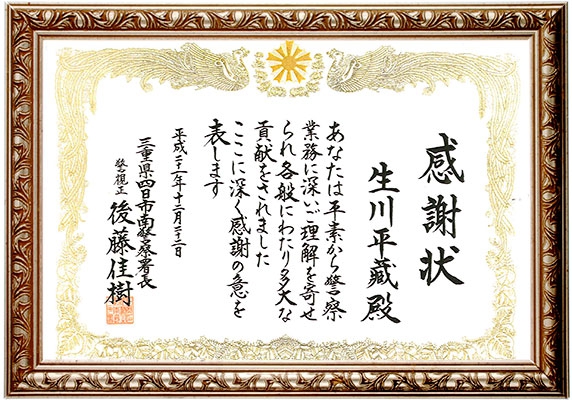 感謝状
生川平藏殿
あなたは平素から警察
業務に深いご理解を寄せ
られ各般にわたり多大な
貢献をされました
ここに深く感謝の意を
表します
平成 年十二月 日
三重県四日市南警察署長
警視正 後藤佳樹